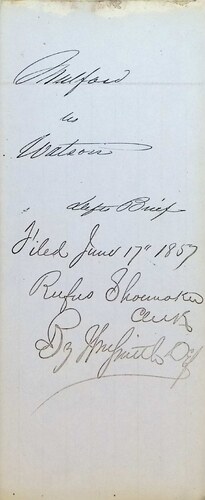 Mulford
vs
Watson
Defts Brief
Filed June 17" 1857
Rufus Shoemaker
Clerk
By Wm Smith Dy